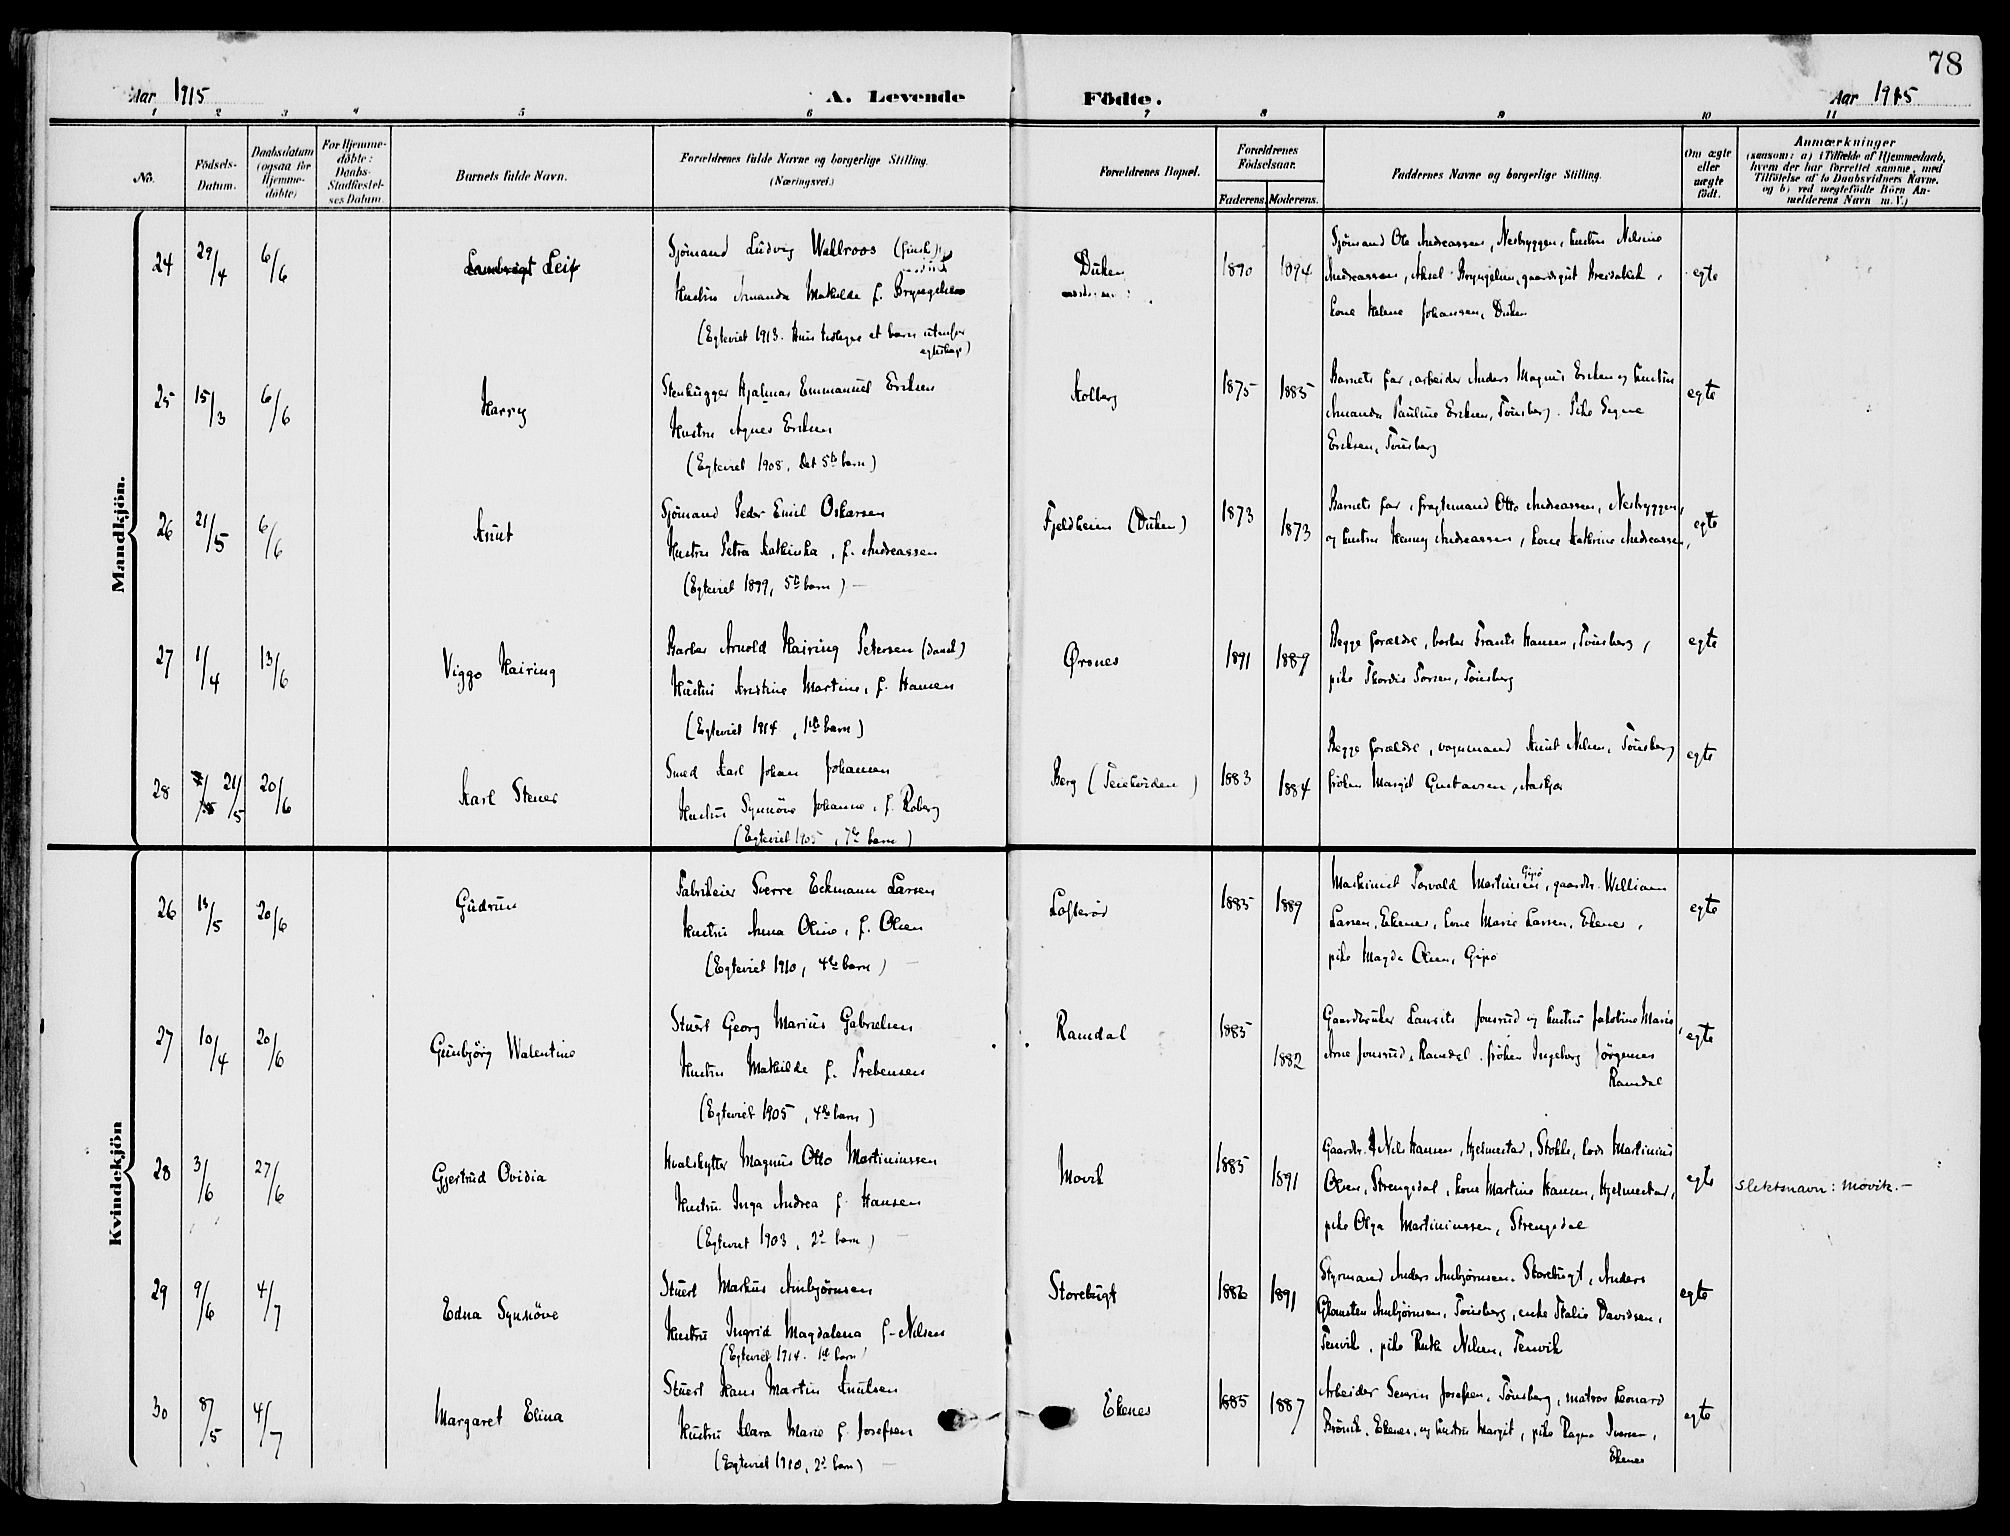 78
Aar 1915 A. Levende Födte. Aar 1915
1 2 3 4 5 6 7 8 9 10 11
No.
Födsels-
Datum.
Daabsdatum
(ogsaa for
Hjemme-
döbte)
For Hjemme-
döbte:
Daabs-
Stadfæstel-
ses Datum.
Barnets fulde Navn.
Forældrenes fulde Navne og borgerlige Stilling.
(Næringsvei.)
Forældrenes Bopæl.
Forældrenes
Födselsaar.
Faderens. Moderens.
Faddernes Navne og borgerlige Stilling.
Om ægte
eller
uægte
födt.
Anmærkninger
(saasom: a) i Tilfælde af Hjemmedaab,
hvem der har forrettet samme, med
Tilföielse af to Daabsvidners Navne.
og b) ved uægtefödte Börn An-
melderens Navn m. V.)
Mandkjön.
24 29/4 6/6 Leif
Sjömand Ludvig Wahlroos (finsk)
Hustru Amanda Mathilde f. Bryngelsen
(Egteviet 1913. Hun tidligere et barn utenfor
egteskap)
Duken
1890 1894
Sjömand Ole Andreassen, Nesbryggen, hustru Nilsine
Andreassen, Aksel Bryngelsen, gaardsgut
kone Helene Johansen, Duken
egte
25 15/3 6/6 Harry
Stenhugger Hjalmar Emmanuel Eriksen
Hustru Agnes Eriksen
(Egteviet 1908, Det 5te barn)
Kolberg
1875 1885
Barnets far, arbeider Anders Magnus Eriksen og hustru
Amanda Pauline Eriksen, Tönsberg. Pike Signe
Eriksen, Tönsberg
egte
26 21/5 6/6 Knut
Sjömand Peder Emil Oskarsen
Hustru Petra Kathinka, f. Andreassen
(Egteviet 1899, 5te barn)
Fjeldheim (Duken)
1873 1873
Barnets far, fragtemand Otto Andreassen, Nesbryggen,
og hustru Henny Andreassen, kone Kathrine Andreassen,
egte
27 1/4 13/6 Viggo Hairing
Barber Arnold Hairing Petersen (dansk)
Hustru Kristine Martine, f. Hansen
(Egteviet 1914, 1te barn)
Ørsnes
1891 1889
Begge forældre, barber Frants Hansen, Tönsberg,
pike Thordis Torsen, Tönsberg
egte
28 21/5 20/6 Karl Stener
Smed Karl Johan Johansen
Hustru Synnöve Johanne, f. Roberg
(Egteviet 1905, 7de barn)
Berg
1883 1884
Begge forældre, vognmand Knut Nilsen, Tönsberg
fröken Margit Gustavsen,
egte
Kvindekjön
26 13/5 20/6 Gudrun
Fabrikeier Sverre Eckmann Larsen
Hustru Anna Oline, f. Olsen
(Egteviet 1910, 4de barn)
Lofteröd
1885 1889
Gipö
Maskinist Torvald Martinsen, gaardbr. William
Larsen, Ekenes, kone Marie Larsen, Ekenes,
pike Magda Olsen, Gipö
egte
27 10/4 20/6 Gunbjörg Walentine
Stuert Georg Marius Gabrielsen
Hustru Mathilde f. Prebensen
(Egteviet 1905, 4de barn)
Ramdal
1885 1882
Gaardbruker Laurits Jonsrud og hustru Jakobine Marie,
Arne Jonsrud, Ramdal. fröken Ingeborg Jörgensen
Ramdal
egte
28 3/6 27/6 Gjertrud Ovidia
Hvalskytter Magnus Otto Martiniussen
Hustru Inga Andrea f. Hansen
(Egteviet 1903, 2det barn)
Movik
1885 1891
Gaardbr. Nils Hansen, Hjelmestad, Stokke, lods Martinius
Olsen, Strengsdal, kone Martine Hansen, Hjelmestad,
pike Olga Martiniussen, Strengsdal
egte
Slektsnavn: Movik.-
29 9/6 4/7 Edna Synnöve
Stuert Markus Ambjörnsen
Hustru Ingrid Magdalena f. Nilsen
(Egteviet 1914. 1ste barn)
Storebugt
1886 1891
Styrmand Anders Ambjörnsen, Storebugt, Anders
Glomsten Ambjörnsen, Tönsberg, enke Thalie Davidsen,
Tenvik, pike Ruth Nilsen, Tenvik
egte
30 8/5 4/7 Margaret Elina
Stuert Hans Martin Knutsen
Hustru Klara Marie f. Josefsen
(Egteviet 1910, 2det barn)
Ekenes
1885 1887
Arbeider Severin Josefsen, Tönsberg, matros Leonard
Brövik, Ekenes, og hustru Margit, pike Ragna Iversen,
Ekenes
egte